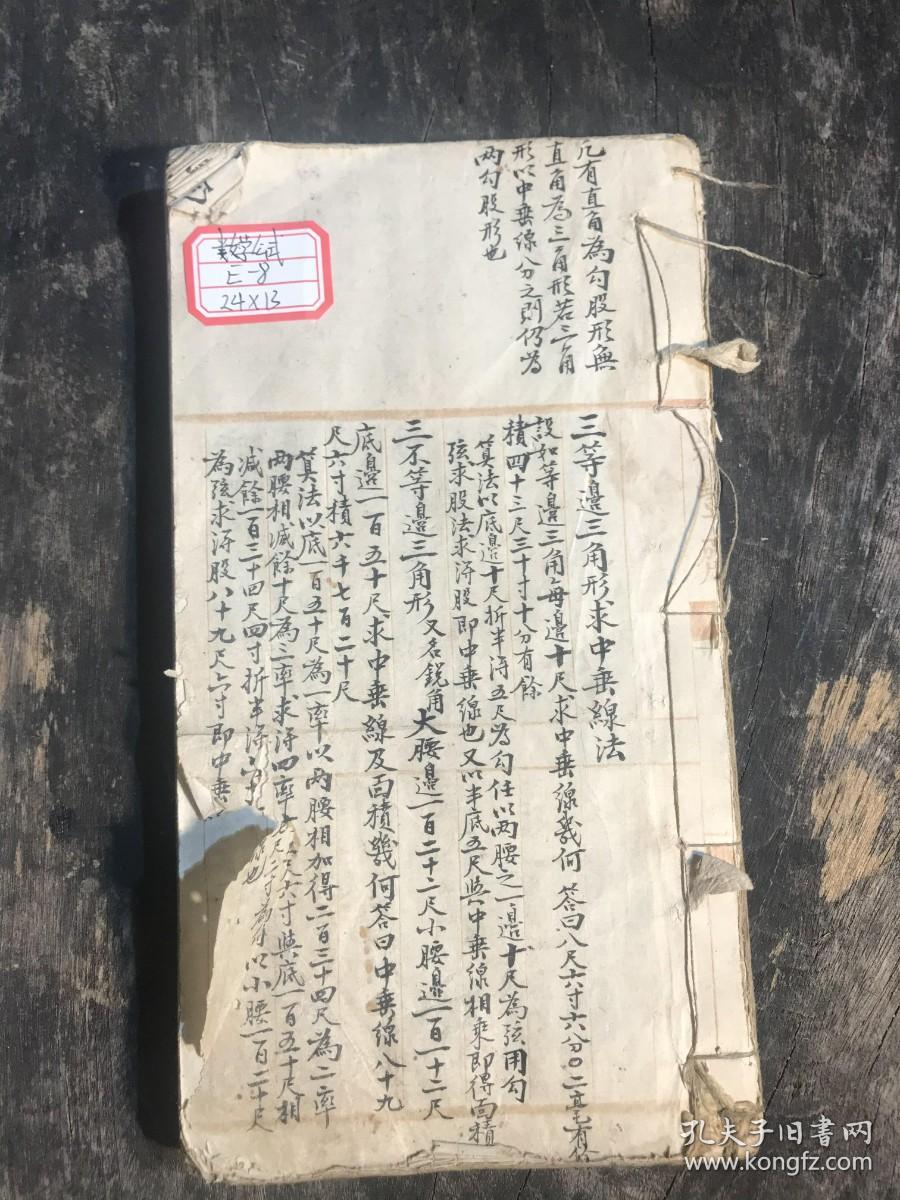 凡有直角為勾股形無
直角為三角形若三角
形以中垂線分之則仍為
兩勾股形也
三等邊三角形求中垂線法
設如等邊三角每邊十尺求中垂線幾何 答曰八尺六寸六分〇二毫有餘
積四十三尺三十寸十分有餘
算法以底邊十尺折半得五尺為勾任以兩腰之一邊十尺為弦用勾
弦求股法求得股即中垂線也又以半底五尺與中垂線相乘即得面積
三不等邊三角形又名銳角大腰邊一百二十二尺小腰邊一百一十二尺
底邊一百五十尺求中垂線及面積幾何答曰中垂線八十九
尺六寸積六千七百二十尺
算法以底一百五十尺為一率以兩腰相加得二百三十四尺為二率
兩腰相減餘十尺為三率求得四率尺六寸與底一百五十尺相
減餘一百三十四尺四寸折半得六十尺二寸為勾以小腰一百一十尺
為弦求得股八十九尺六寸即中垂線也
E-8
24×13
孔夫子旧书网
www.kongfz.com